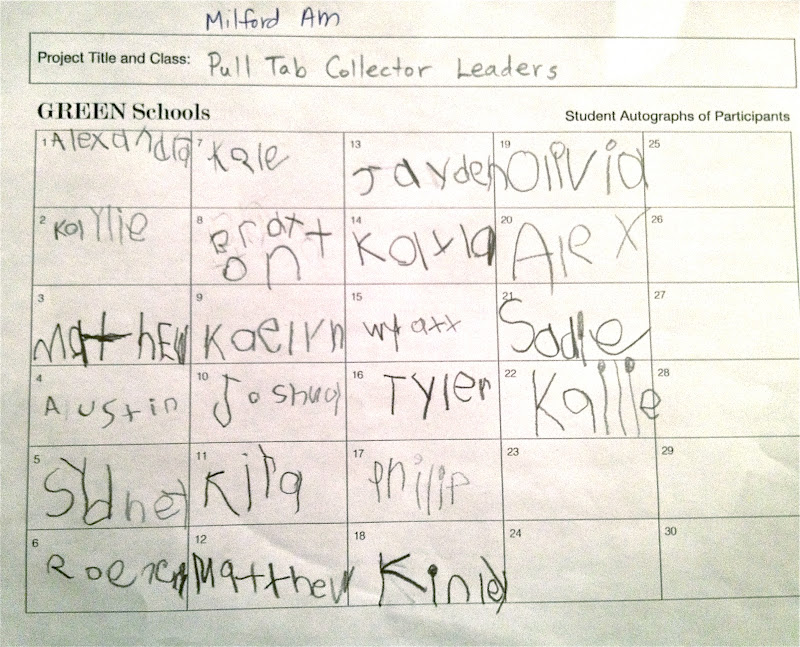 Milford AM
Project Title and Class: Pull Tab Collector Leaders
GREEN Schools Student Autographs of Participants
1 Alexandria 7 Kale 13 Jayden 19 Olivia 25
2 KaYlie 8 Braxt 14 Kayla 20 Alex 26
on
3 MatthEw 9 Kaelyn 15 Wyatt 21 Sadie 27
4 Austin 10 Joshua 16 Tyler 22 Kailie 28
5 Sydney 11 Kira 17 Philip 23 29
6 12 Matthew 18 Kinley 24 30